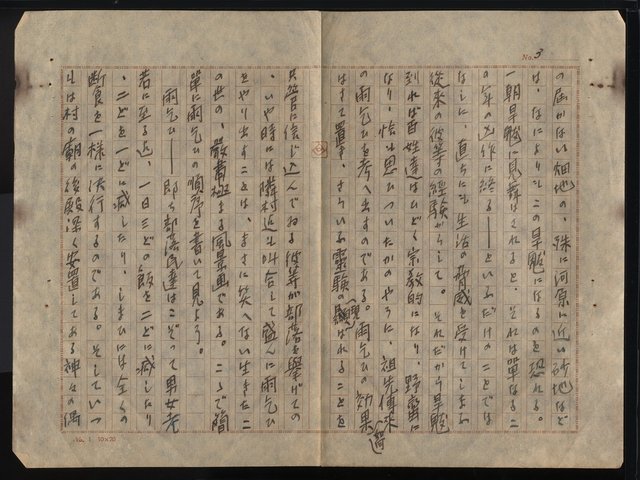 No. 3
の届かない畑地の、殊に河原に近い砂地など
は、なによりもこの旱魃になるのを恐れる。
一朝旱魃に見舞はれると、それは單なるこ
の年の凶作に終る――といふだけのことでは
なしに、直ちにも生活の脅威を受けてしまふ
從来の彼等の經驗からして。それだから旱魃
到れば百姓達はひどく宗教的になり、野蠻に
なり、恰も思ひついたかのやうに、祖先傳来
の雨乞ひを考へ出すのである。雨乞ひの効果
はさて置き、さういふ靈驗の顯はれることを
只管に信じ込んでゐる彼等が部落を擧げての
、いや時には隣村近も糾合して盛んに雨乞ひ
をやり出すことは、まさに笑へない生きたこ
の世の、嚴肅極まる風景画である。ころで簡
單に雨乞ひの順序を書いて見よう。
雨乞ひ――卽ち部落民達はこぞって男女老
若に至る迄、一日三どの飯を二どに減したり
、二どを一どに減したり、しまひには全くの
断食を一様に決行するのである。そしていつ
もは村の廟の後殿深く安置してある神々の偶
No. 1. 10×20